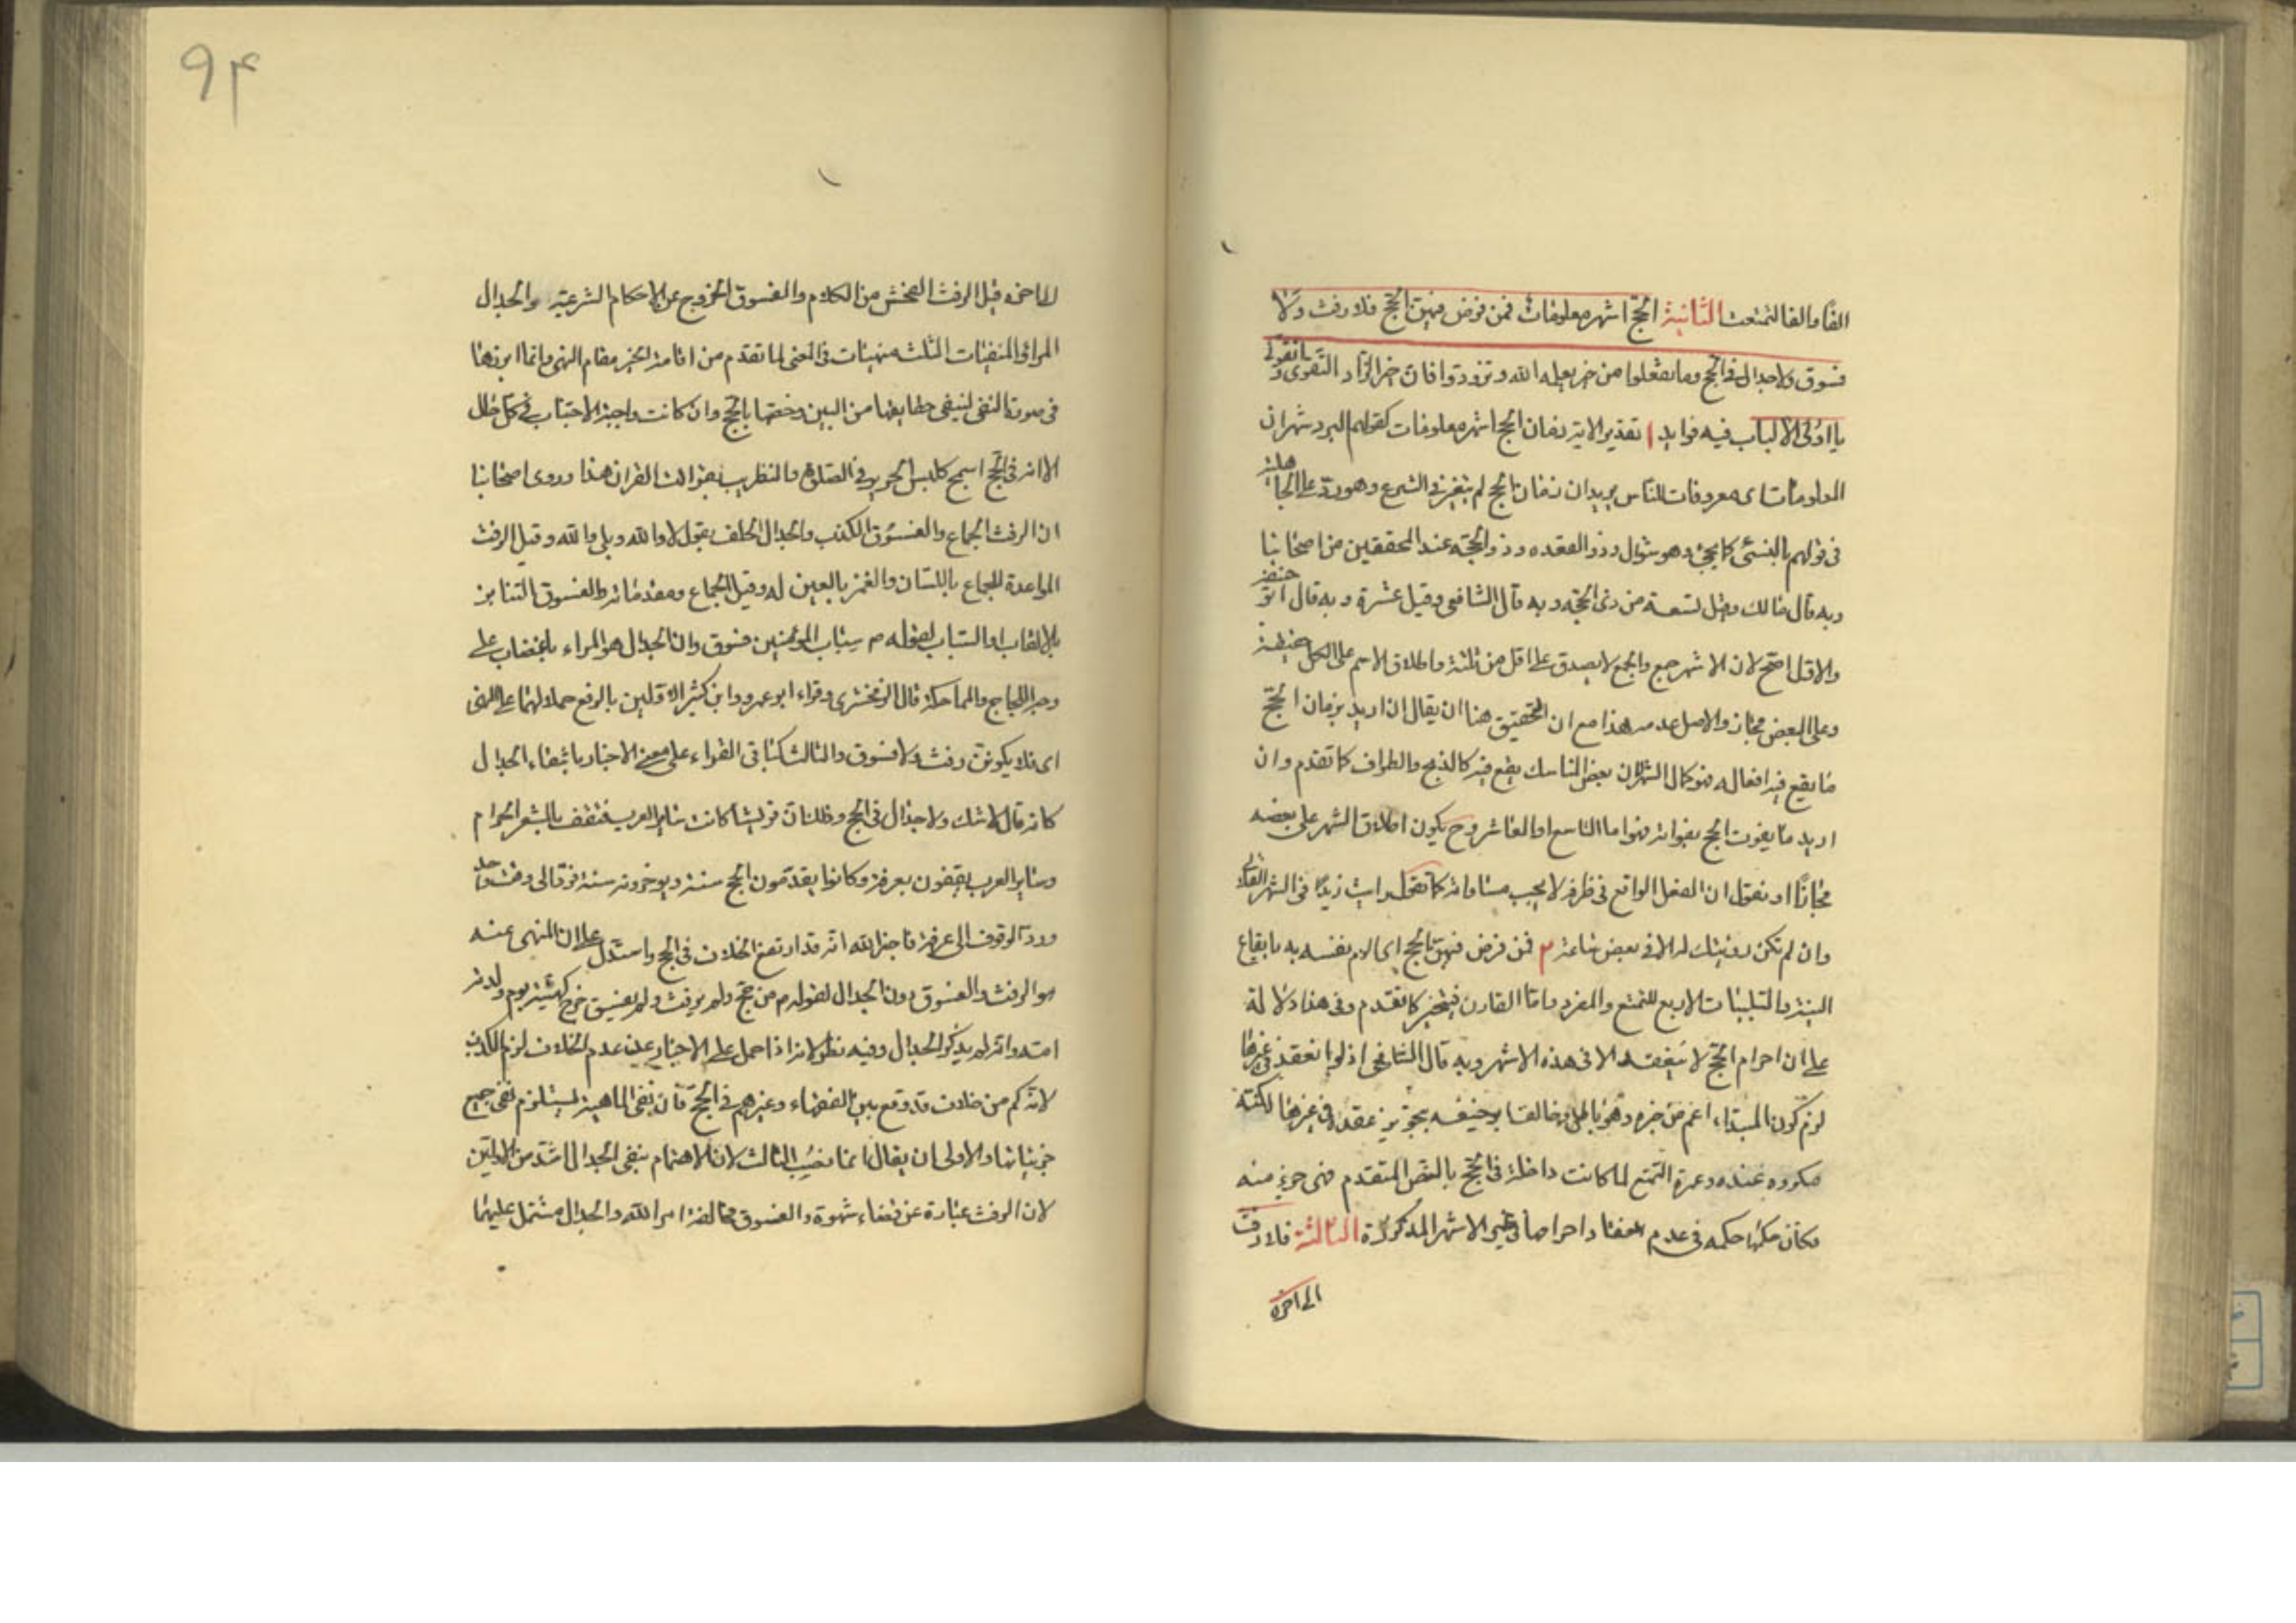 الفا والفا لتمتعت الثانية الحج اشهر معلومات فمن فرض فيهن الحج فلا رفث ولا
فسوق ولا جدال في الحج وما تفعلوا من خير يعلمه الله وتزودوا فان خير الزاد التقوى واتقون
يا اولى الالباب فيه فوايد ا تقدير الاية زمان الحج اشهر معلومات كقولهم البرد شهران
المعلومات اى معروفات للناس يريد ان زمان الحج لم يتغير في الشرع وهو رد على الجاهلية
في قولهم بالنسئ كما يجئ وهو شوال وذو القعده وذو الحجة عند المحققين من اصحابنا
وبه قال مالك وقيل تسعة من ذى الحجة وبه قال الشافعي وقيل عشرة وبه قال ابو حنيفة
والاول اصح لان الاشهر جمع والجمع لا يصدق على اقل من ثلثة واطلاق الاسم على الكل حقيقة
وعلى البعض مجاز والاصل عدمه هذا مع ان التحقيق هنا ان يقال ان اريد بزمان الحج
ما يقع فيه افعاله فهو كمال الشهر لان بعض المناسك يقع فيه كالذبح والطواف كما تقدم وان
اريد ما يفوت الحج بفواته فهو اما التاسع او العاشر وح يكون اطلاق الشهر على بعضه
مجازا او نقول ان الفعل الواقع في ظرف لا يجب مساواته كما تقول رايت زيدا في الشهر الفلانى
وان لم تكن رؤيتك له الا في بعض ساعة ٢ فمن فرض فيهن الحج اى الزم نفسه به بايقاع
النية والتلبيات الاربع للتمتع والمفرد واما القارن فيتخير كما تقدم وفى هذا دلالة
على ان احرام الحج لا ينعقد الا في هذه الاشهر وبه قال الشافعى اذ لو انعقد في غيرها
لزم كون المبتداء اعم من خبره وهو باطل وخالف ابو حنيفه بتجويز عقده في غيرها لكنه
مكروه عنده وعمرة التمتع لما كانت داخلة في الحج بالنص المتقدم فهى جزء منه
فكان حكمها حكمه في عدم انعقاد احرامها في غير الاشهر المذكورة الثالثة فلا رفث
الى اخره
٩٤
الى اخره قيل الرفث الفحش من الكلام والفسوق الخروج عن الاحكام الشرعية والجدال
المراء والمنفيات الثلثه منهيات في المعنى لما تقدم من اقامة الخبر مقام النهى وانما ابرزها
في صورة النفى لينفى حقايقها من البين وخصها بالحج وان كانت واجبة الاجتناب في كل حال
الا انه في الحج اسمج كلبس الحرير في الصلوة والتطريب بقراءة القران هذا وروى اصحابنا
ان الرفث الجماع والفسوق الكذب والجدال الحلف بقول لا والله وبلى والله وقيل الرفث
المواعدة للجماع باللسان والغمز بالعين له وقيل الجماع ومقدماته والفسوق التنابز
بالالقاب او السباب لقوله م سباب المؤمنين فسوق وان الجدال هو المراء باغضاب على
وجه اللجاج والمماحكة قال الزمخشرى وقراء ابو عمرو وابن كثير الاولين بالرفع حملا لهما على النهى
اى فلا يكونن رفث ولا فسوق والثالث كباقى القراء على معنى الاخبار بانتفاء الجدال
كانه قال لا شك ولا جدال في الحج وذلك ان قريشا كانت تخالف ساير العرب فتقف بالمشعر الحرام
وساير العرب يقفون بعرفة وكانوا يقدمون الحج سنة ويوخرونه سنة فرد الى وقت واحد
ورد الوقوف الى عرفة فاخبر الله انه قد ارتفع الخلاف في الحج واستدل على ان المنهى عنه
هو الرفث والفسوق دون الجدال لقوله م من حج ولم يرفث ولم يفسق خرج كهيئة يوم ولدته
امه وانه لم يذكر الجدال وفيه نظر لانه اذا حمل على الاخبار عن عدم الخلاف لزم الكذب
لانه كم من خلاف قد وقع بين الفقهاء وغيرهم في الحج فان نفى الماهية يستلزم نفى جميع
جزئياتها والاولى ان يقال انما نصب الثالث لان الاهتمام بنفى الجدال اشد من الاولين
لان الرفث عبارة عن قضاء شهوة والفسوق مخالفة امر الله والجدال مشتمل عليهما